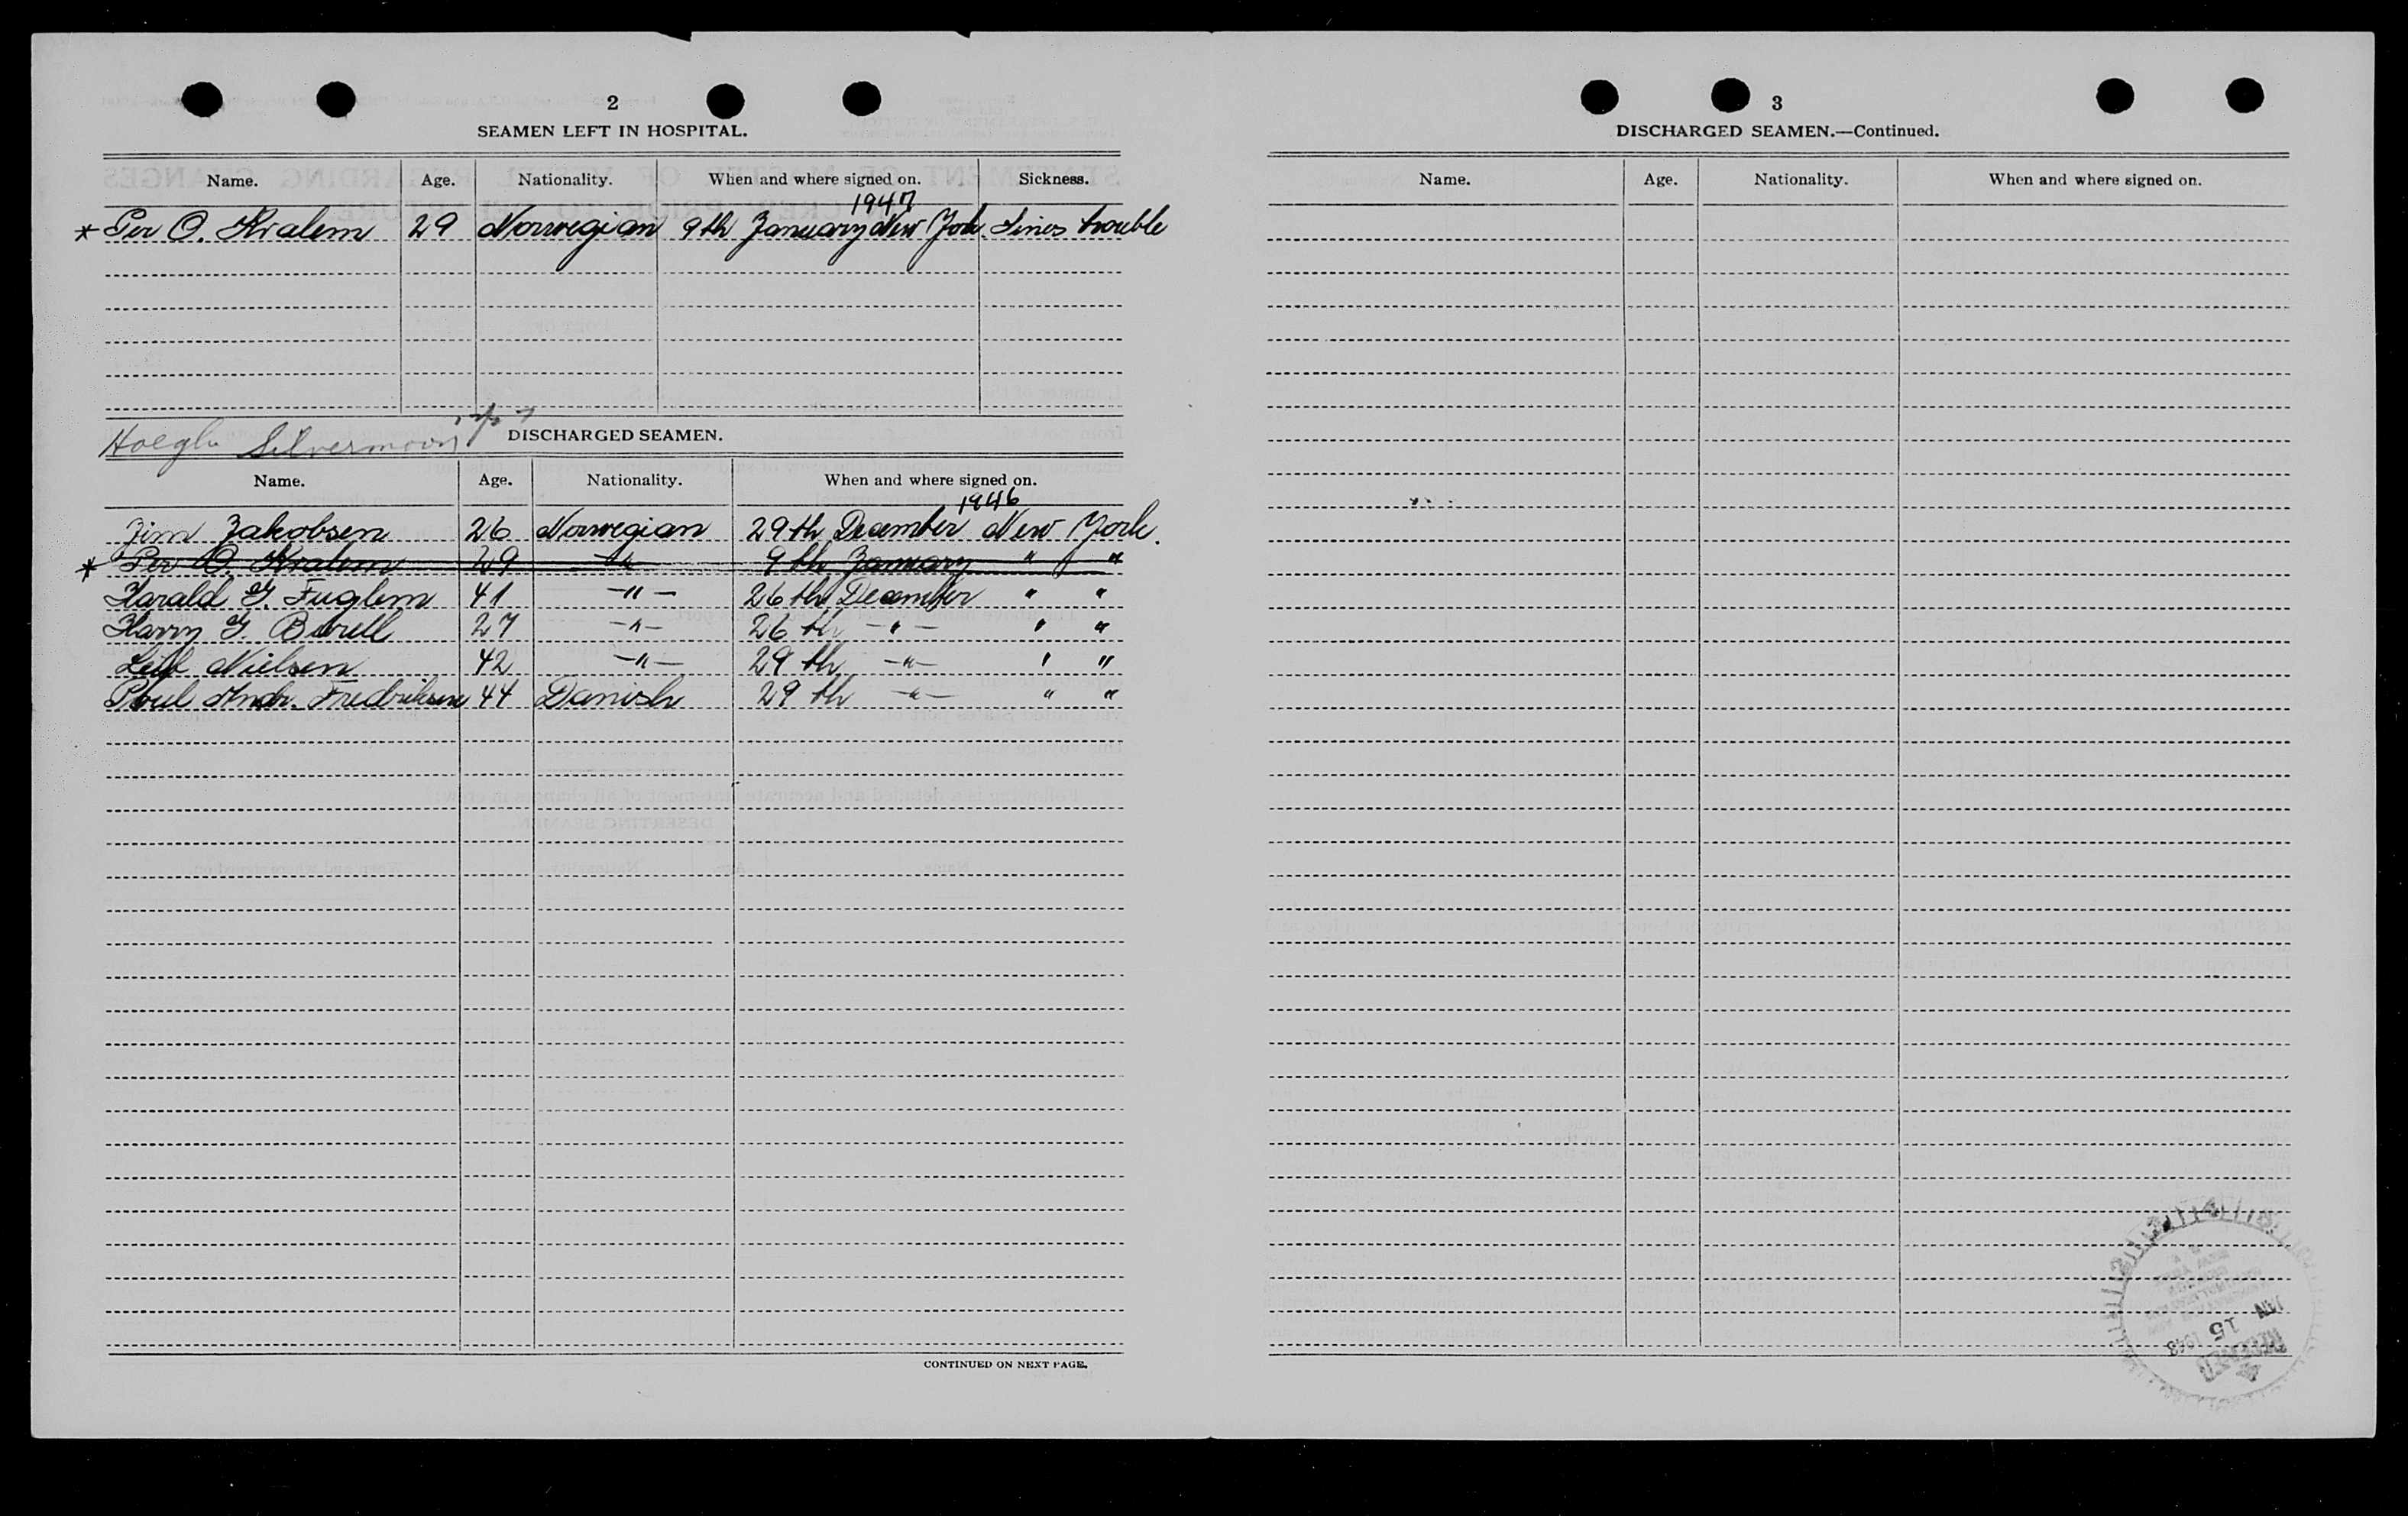 2
SEAMEN LEFT IN HOSPITAL.
Name. Age. Nationality. When and where signed on. Sickness.
1947
* Per O. Kralem 29 Norwegian 9th January New York. Sines trouble
Hoegh Silvermoon
DISCHARGED SEAMEN.
Name. Age. Nationality. When and where signed on.
1946
Jim Jakobsen 26 Norwegian 29th December New York.
* Per O. Kralem 29 -"- 9th January " "
Harald G. Fuglem 41 -"- 26th December " "
Harry G. 27 -"- 26th -"- " "
Leif Nielsen 42 -"- 29th -"- " "
Poul Andr. Fredriksen 44 Danish 29th -"- " "
CONTINUED ON NEXT PAGE.
3
DISCHARGED SEAMEN.—Continued.
Name. Age. Nationality. When and where signed on.
JAN 15 1948